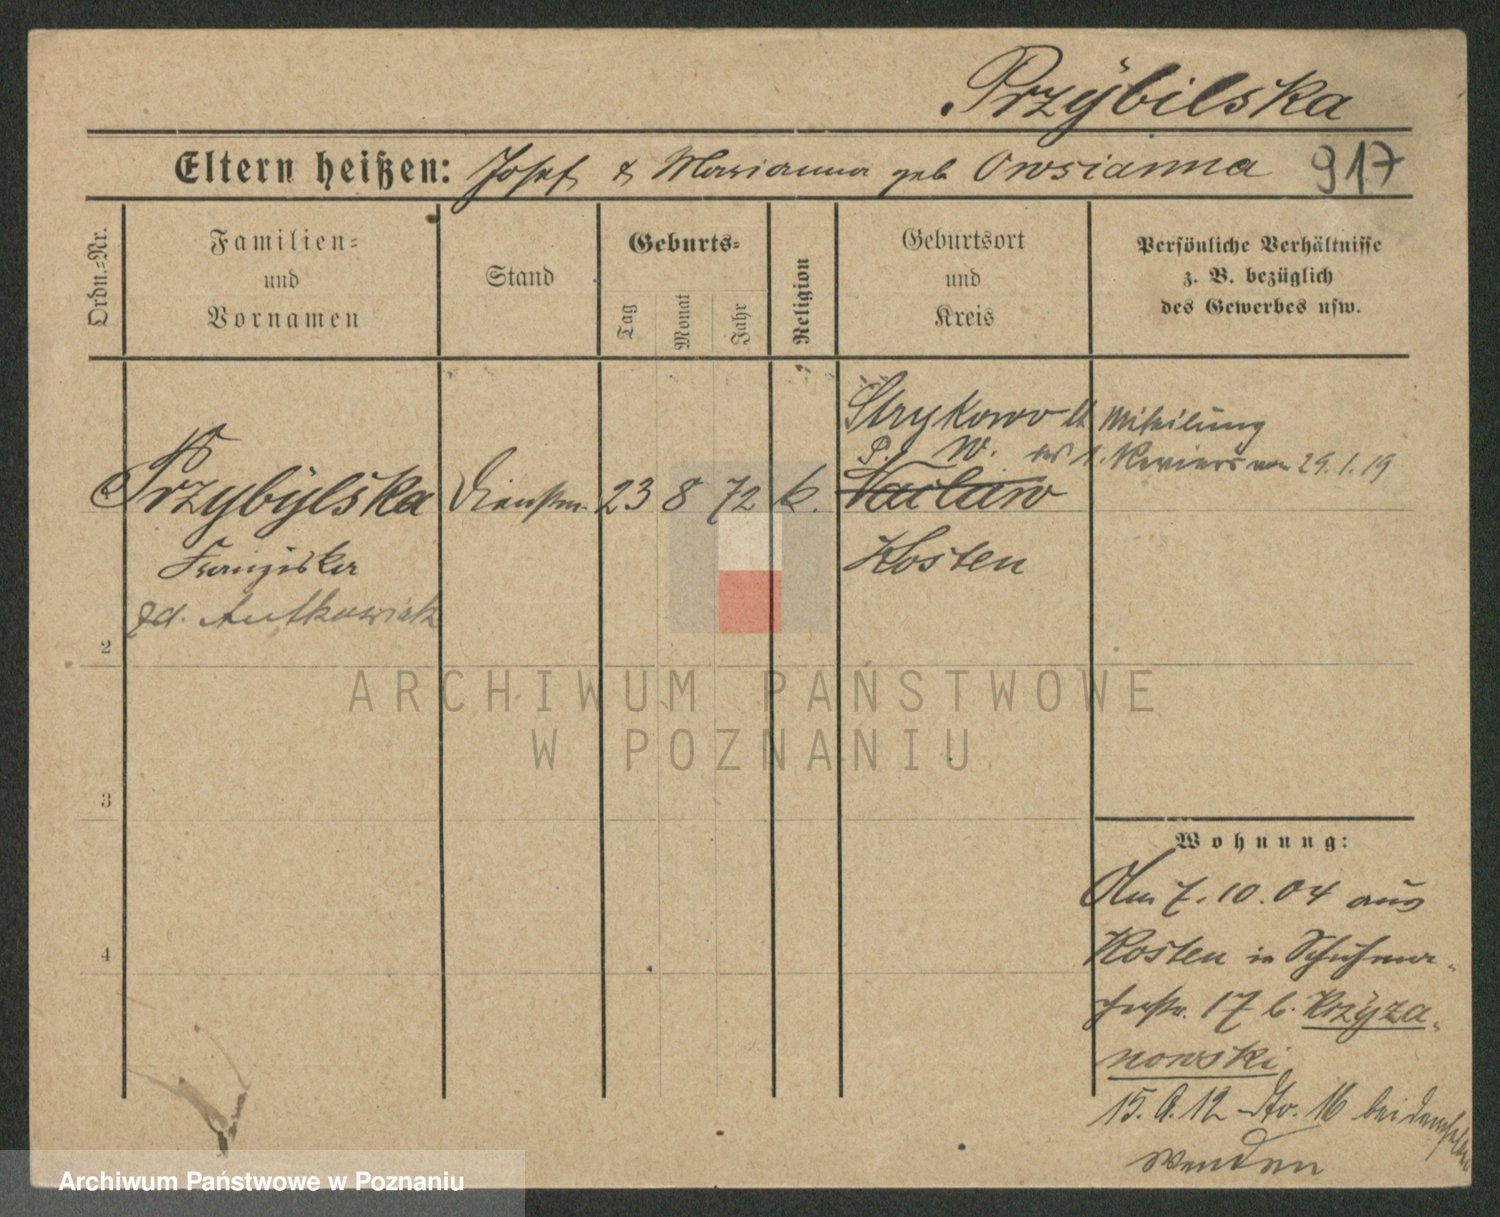 Przÿbilska
Eltern heißen: Josef & Marianna geb Owsianna 917
Ordn.=Nr.
Familien=
und
Vornamen
Stand
Geburts=
Tag
Monat
Jahr
Religion
Geburtsort
und
Kreis
Persönliche Verhältnisse
z. B. bezüglich
des Gewerbes usw.
Strykowo lt Mitteilung
P. W. des 1. Reviers vom 29.1.19
Przybÿlska Dienstm. 23 8 72 k. Waclaw
Franziska Kosten
gd. Antkowiak
2
3
4
ARCHIWUM PAŃSTWOWE
W POZNANIU
Wohnung:
Am 7. 10. 04 aus
Kosten in Schuhma-
cherstr. 17 b. Krzÿza-
nowski
15. 12 No. 16 bei
Wenden
Archiwum Państwowe w Poznaniu